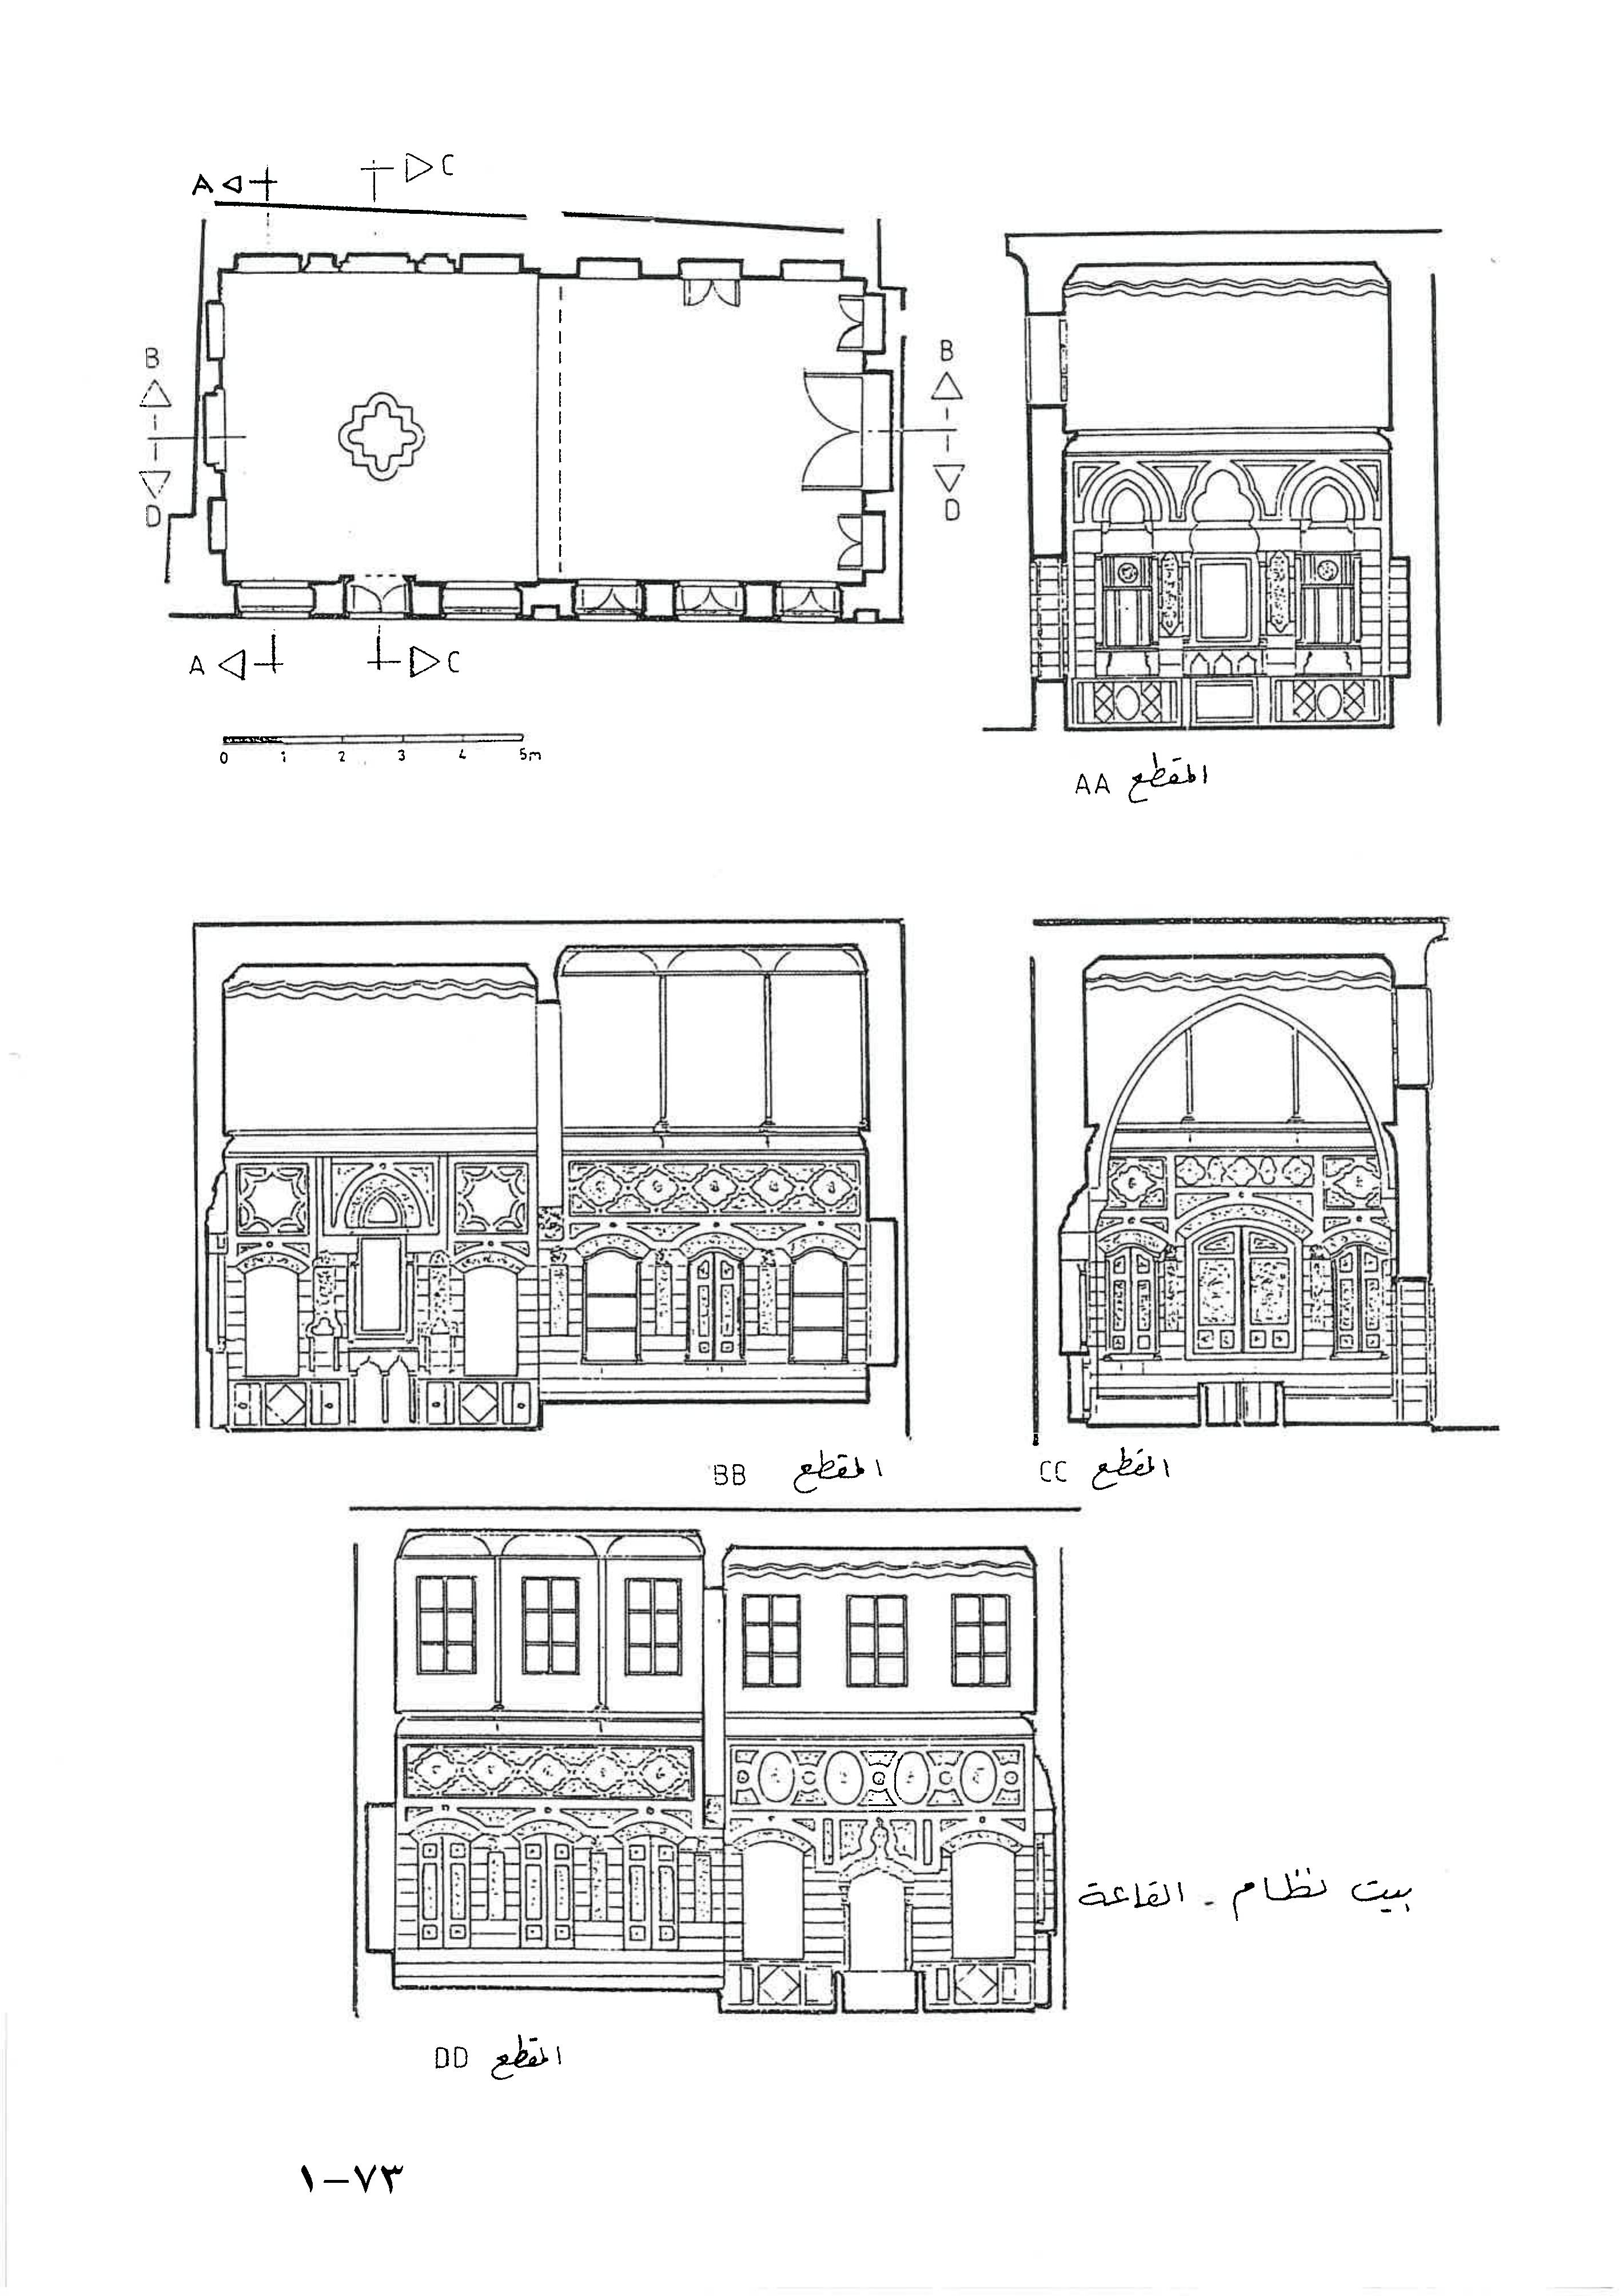 A C
B B
D D
A C
0 1 2 3 4 5m
المقطع AA
المقطع BB
المقطع CC
بيت نظام - القاعة
المقطع DD
١-٧٣